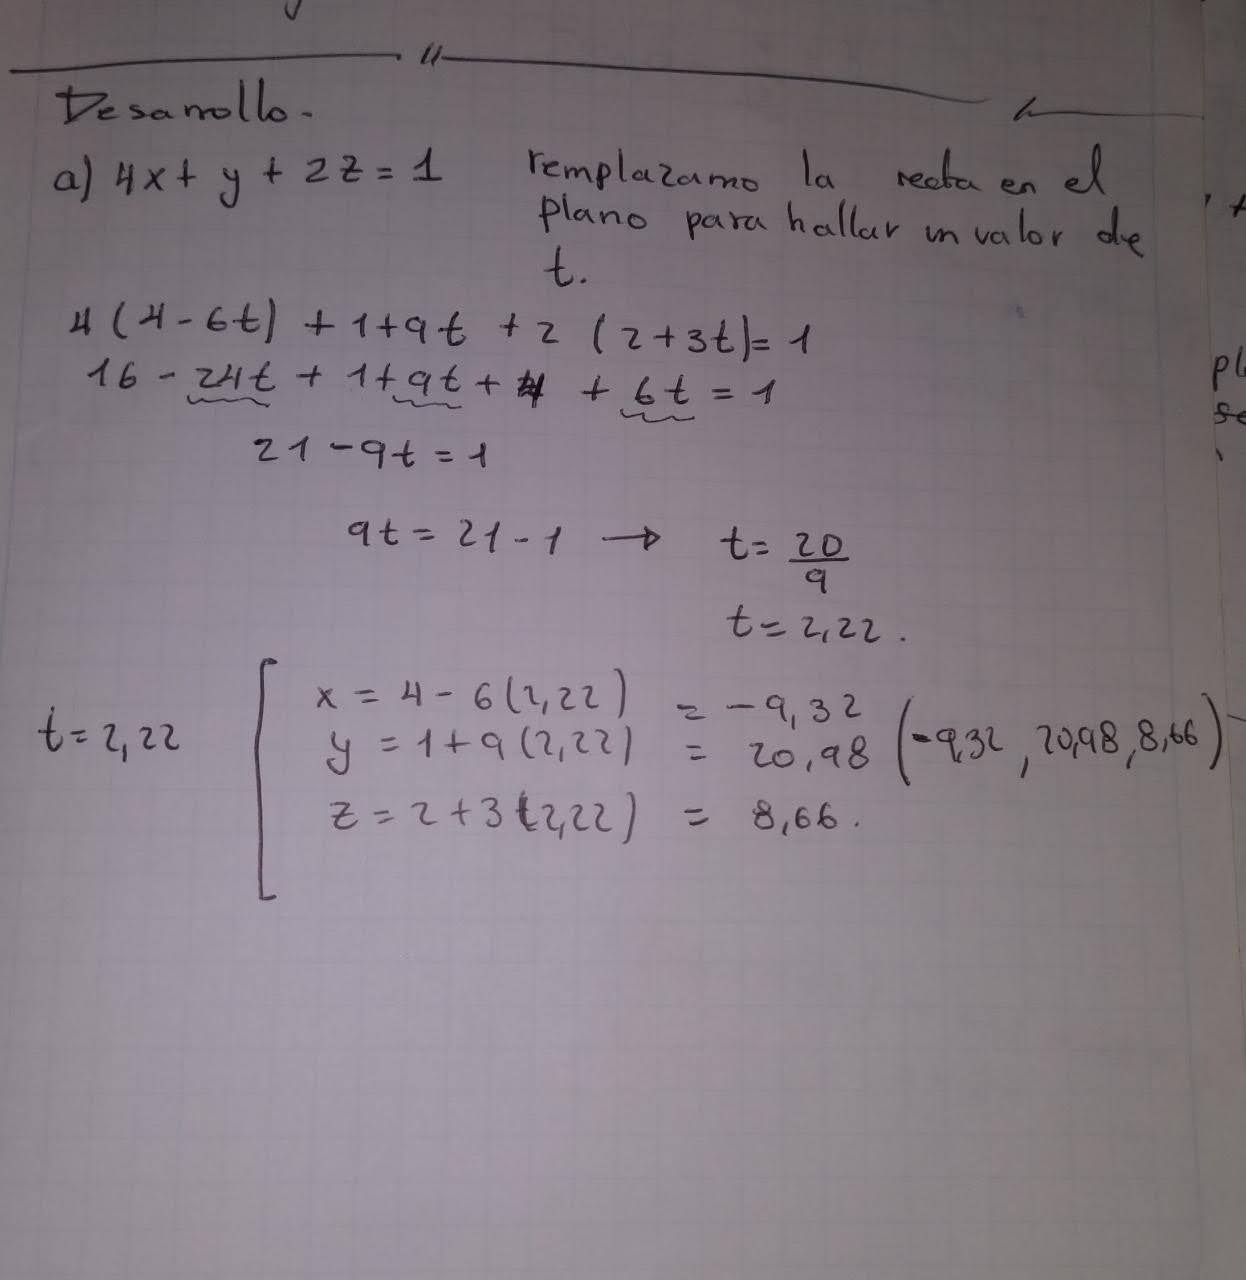 Desarrollo.
a) 4x + y + 2z = 1 remplazamo la recta en el
plano para hallar un valor de
t.
4(4-6t) + 1+9t + 2 (2+3t) = 1
16 - 24t + 1+9t + 4 + 6t = 1
21 - 9t = 1
9t = 21 - 1 → t = 20/9
t = 2,22.
x = 4 - 6(2,22) = -9,32
t = 2,22 y = 1 + 9(2,22) = 20,98 (-9,32, 20,98, 8,66)
z = 2 + 3(2,22) = 8,66.